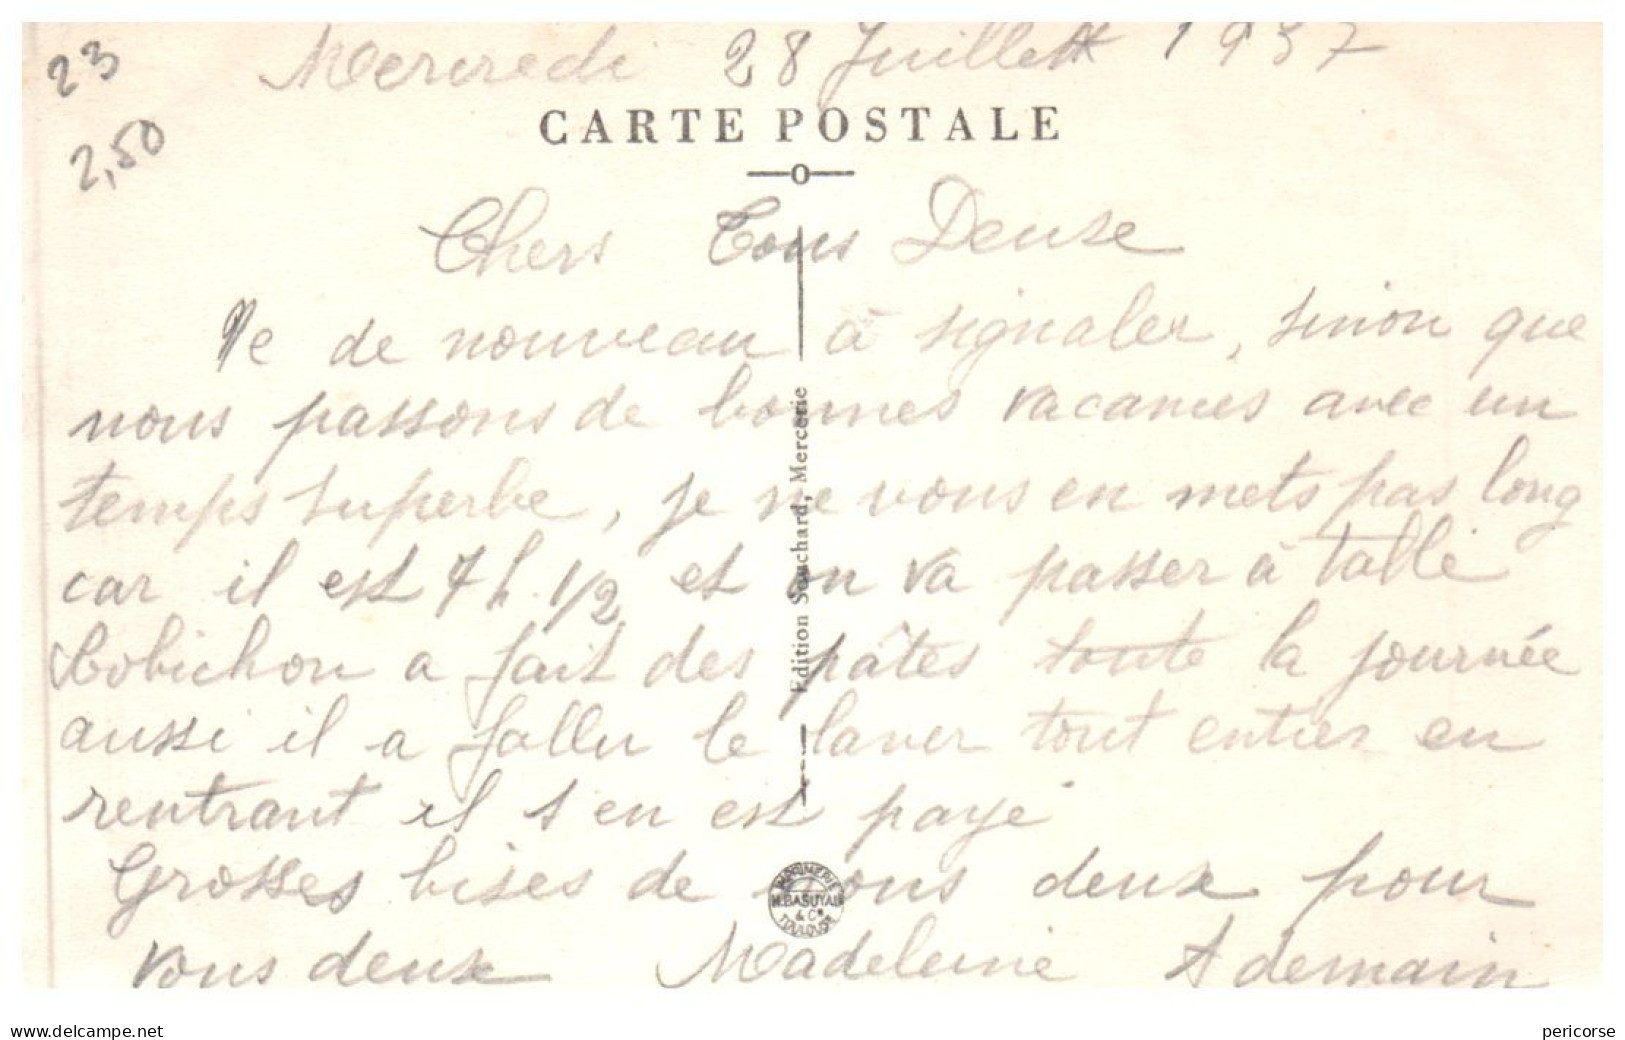 23
2,50
Mercredi 28 Juillet 1937
CARTE POSTALE
Chers Tous Deux
de nouveau à signaler, sinon que
nous passons de bonnes vacances avec un
temps superbe, je ne vous en mets pas long
car il est 7 h. 1/2 et on va passer à table
Bobichon a fait des pâtes toute la journée
aussi il a fallu le laver tout entier en
rentrant il s'en est payé
Grosses bises de nous deux pour
vous deux Madeleine A demain
Edition Souchard, Mercerie
IMPRIMERIE
H. BASUYAU
& Cº
TOULOUSE
www.delcampe.net
pericorse